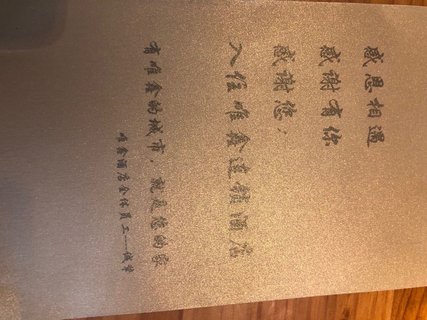 感恩相遇
感谢有你
感谢您：
入住唯鑫连锁酒店
有唯鑫的城市，就是您的家
唯鑫酒店全体员工——敬荐